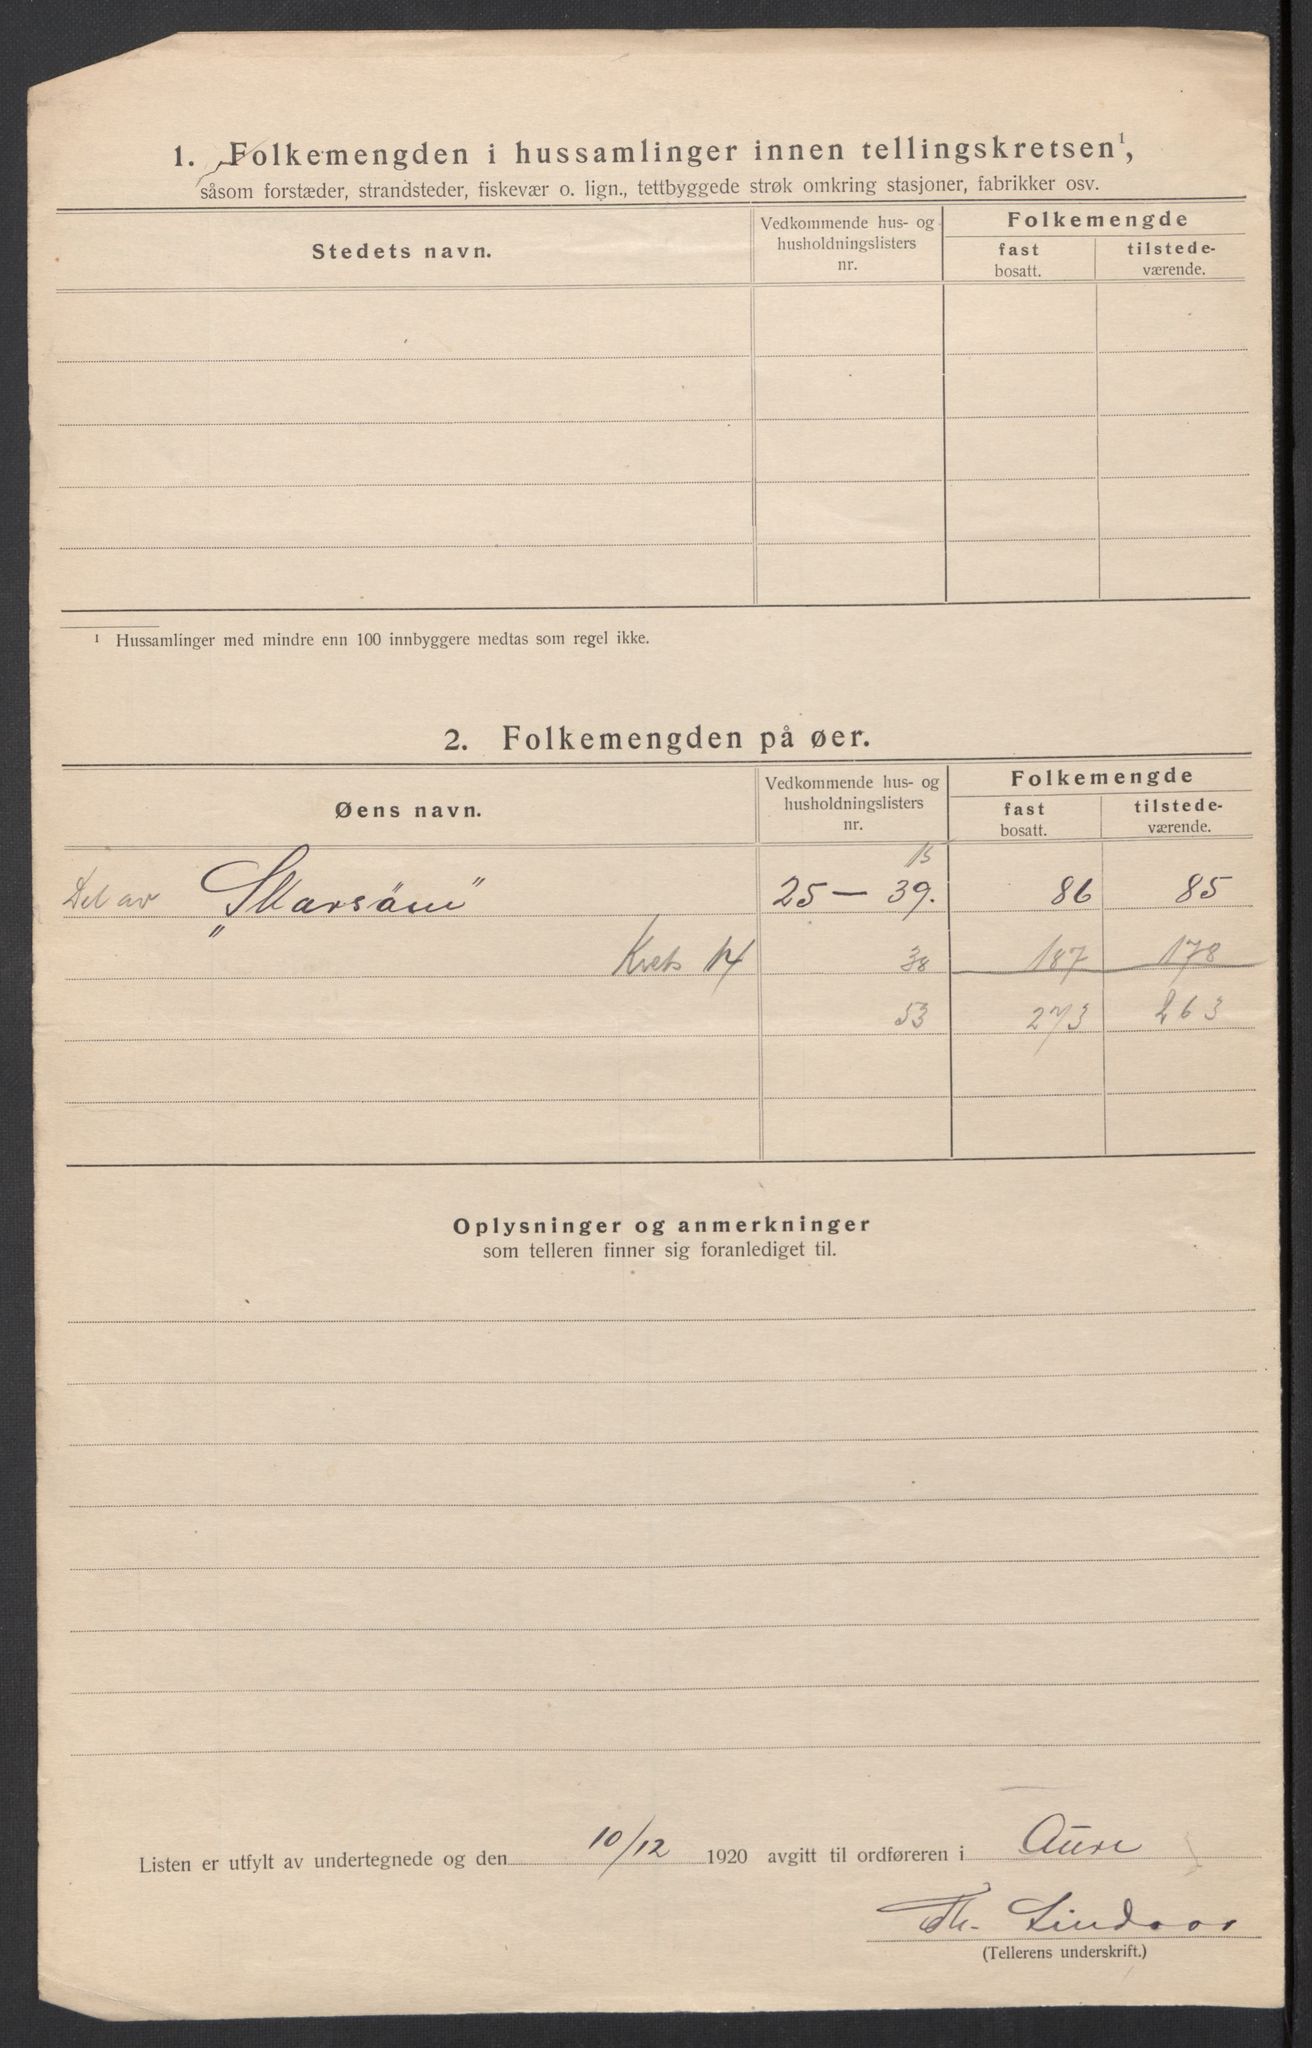 1. Folkemengden i hussamlinger innen tellingskretsen¹,
såsom forstæder, strandsteder, fiskevær o. lign., tettbyggede strøk omkring stasjoner, fabrikker osv.
Stedets navn. Vedkommende hus- og husholdningslisters nr. Folkemengde
fast bosatt. tilstede-værende.
¹ Hussamlinger med mindre enn 100 innbyggere medtas som regel ikke.
2. Folkemengden på øer.
Øens navn. Vedkommende hus- og husholdningslisters nr. Folkemengde
fast bosatt. tilstede-værende.
15
Del av „Skarsöen" 25 — 39. 86 85
Krets 14 38 187 178
53 273 263
Oplysninger og anmerkninger
som telleren finner sig foranlediget til.
Listen er utfylt av undertegnede og den 10/12 1920 avgitt til ordføreren i Aure
Th. Lindaas
(Tellerens underskrift.)